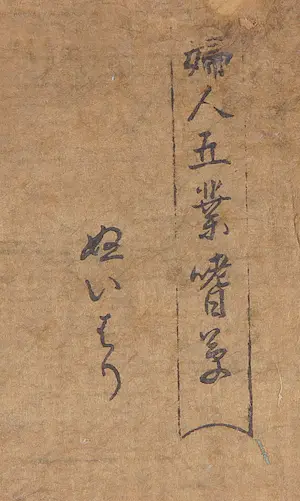 婦人五業嗜草
ぬいはり